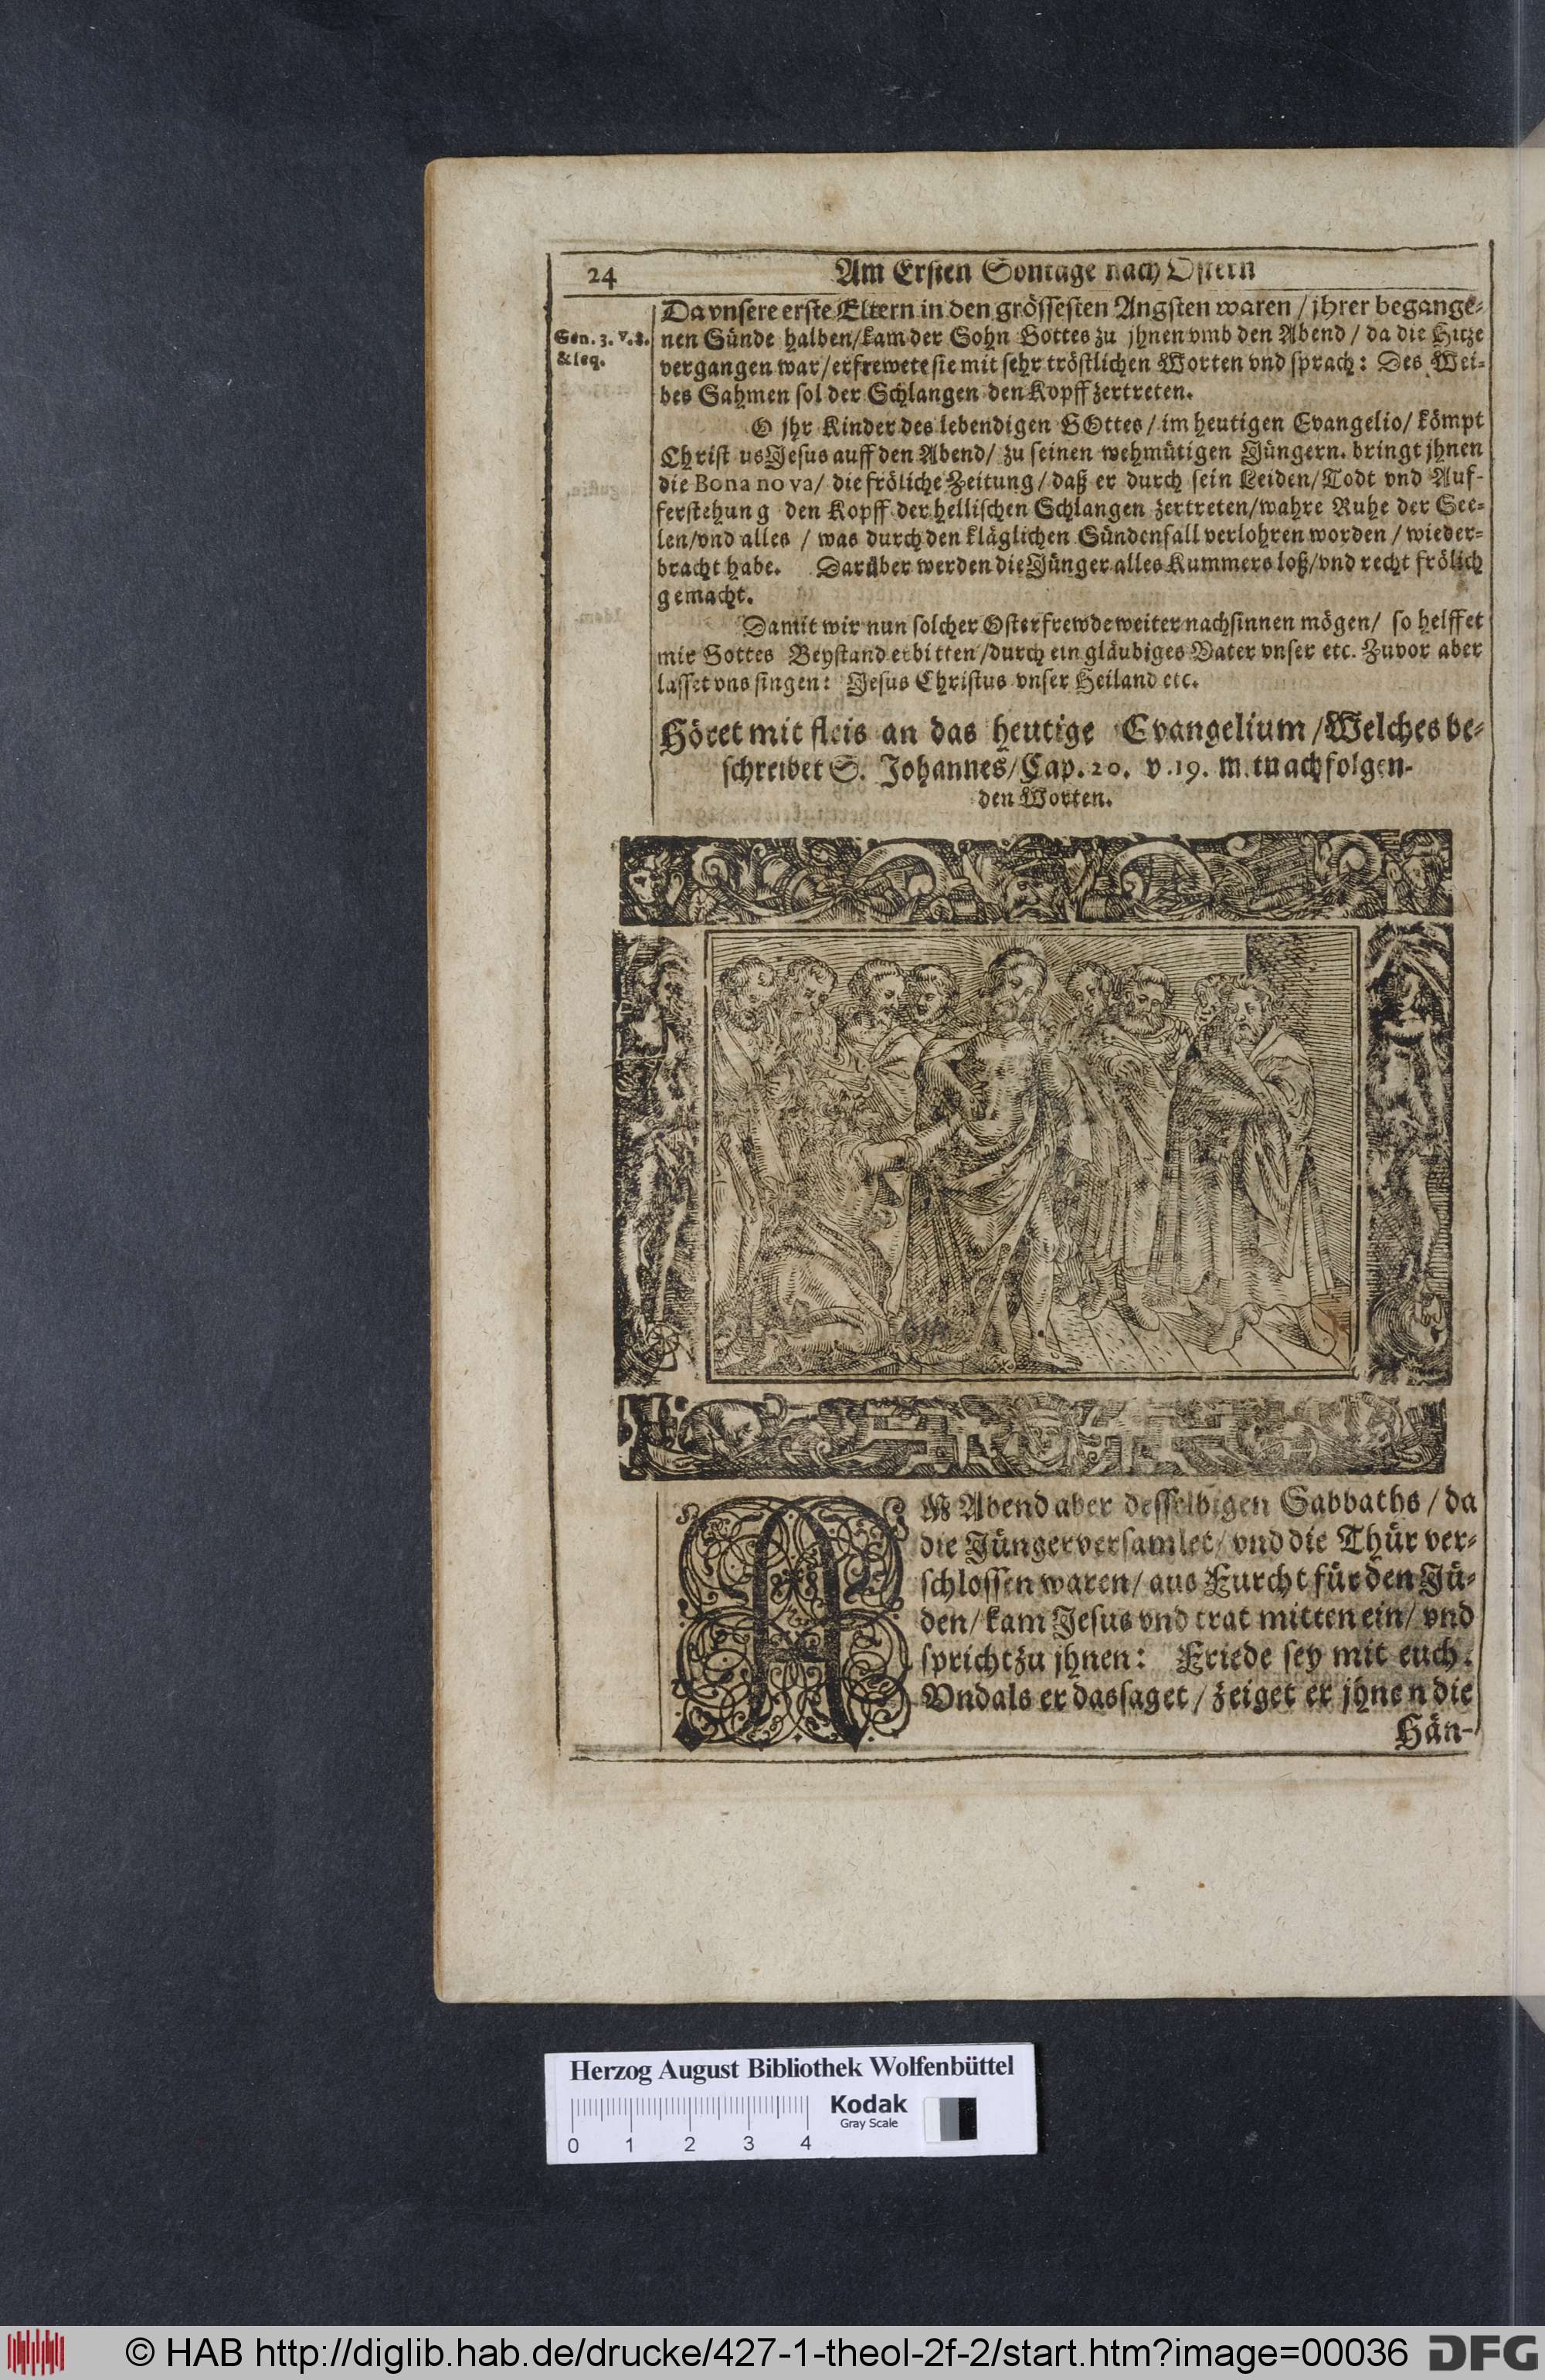 24
Am Ersten Sontage nach Ostern
Da vnsere erste Eltern in den grössesten Angsten waren / jhrer begange-
Gen. 3. v. 8.
& seq.
nen Sünde halben/kam der Sohn Gottes zu jhnen vmb den Abend / da die Hitze
vergangen war/erfrewete sie mit sehr tröstlichen Worten vnd sprach: Des Wei-
bes Sahmen sol der Schlangen den Kopff zertreten.
O jhr Kinder des lebendigen GOttes / im heutigen Evangelio/ kömpt
Christ us Jesus auff den Abend/ zu seinen wehmütigen Jüngern. bringt jhnen
die Bona no va/ die fröliche Zeitung / daß er durch sein Leiden/ Todt vnd Auf-
ferstehung den Kopff der hellischen Schlangen zertreten/wahre Ruhe der See-
len/vnd alles / was durch den kläglichen Sündenfall verlohren worden / wieder-
bracht habe. Darüber werden die Jünger alles Kummers loß/vnd recht frölich
gemacht.
Damit wir nun solcher Osterfrewde weiter nachsinnen mögen/ so helffet
mir Gottes Beystand erbitten /durch ein gläubiges Vater vnser etc. Zuvor aber
lasset vns singen: Jesus Christus vnser Heiland etc.
Höret mit fleis an das heutige Evangelium /Welches be-
schreibet S. Johannes/ Cap. 20. v. 19. mit nachfolgen-
den Worten.
AM Abend aber desselbigen Sabbaths / da
die Jünger versamlet/ vnd die Thür ver-
schlossen waren/ aus Furcht für den Jü-
den/ kam Jesus vnd trat mitten ein/ vnd
spricht zu jhnen: Friede sey mit euch.
Vnd als er das saget / zeiget er jhnen die
Hän-
Herzog August Bibliothek Wolfenbüttel
Kodak
Gray Scale
0 1 2 3 4
© HAB http://diglib.hab.de/drucke/427-1-theol-2f-2/start.htm?image=00036
DFG